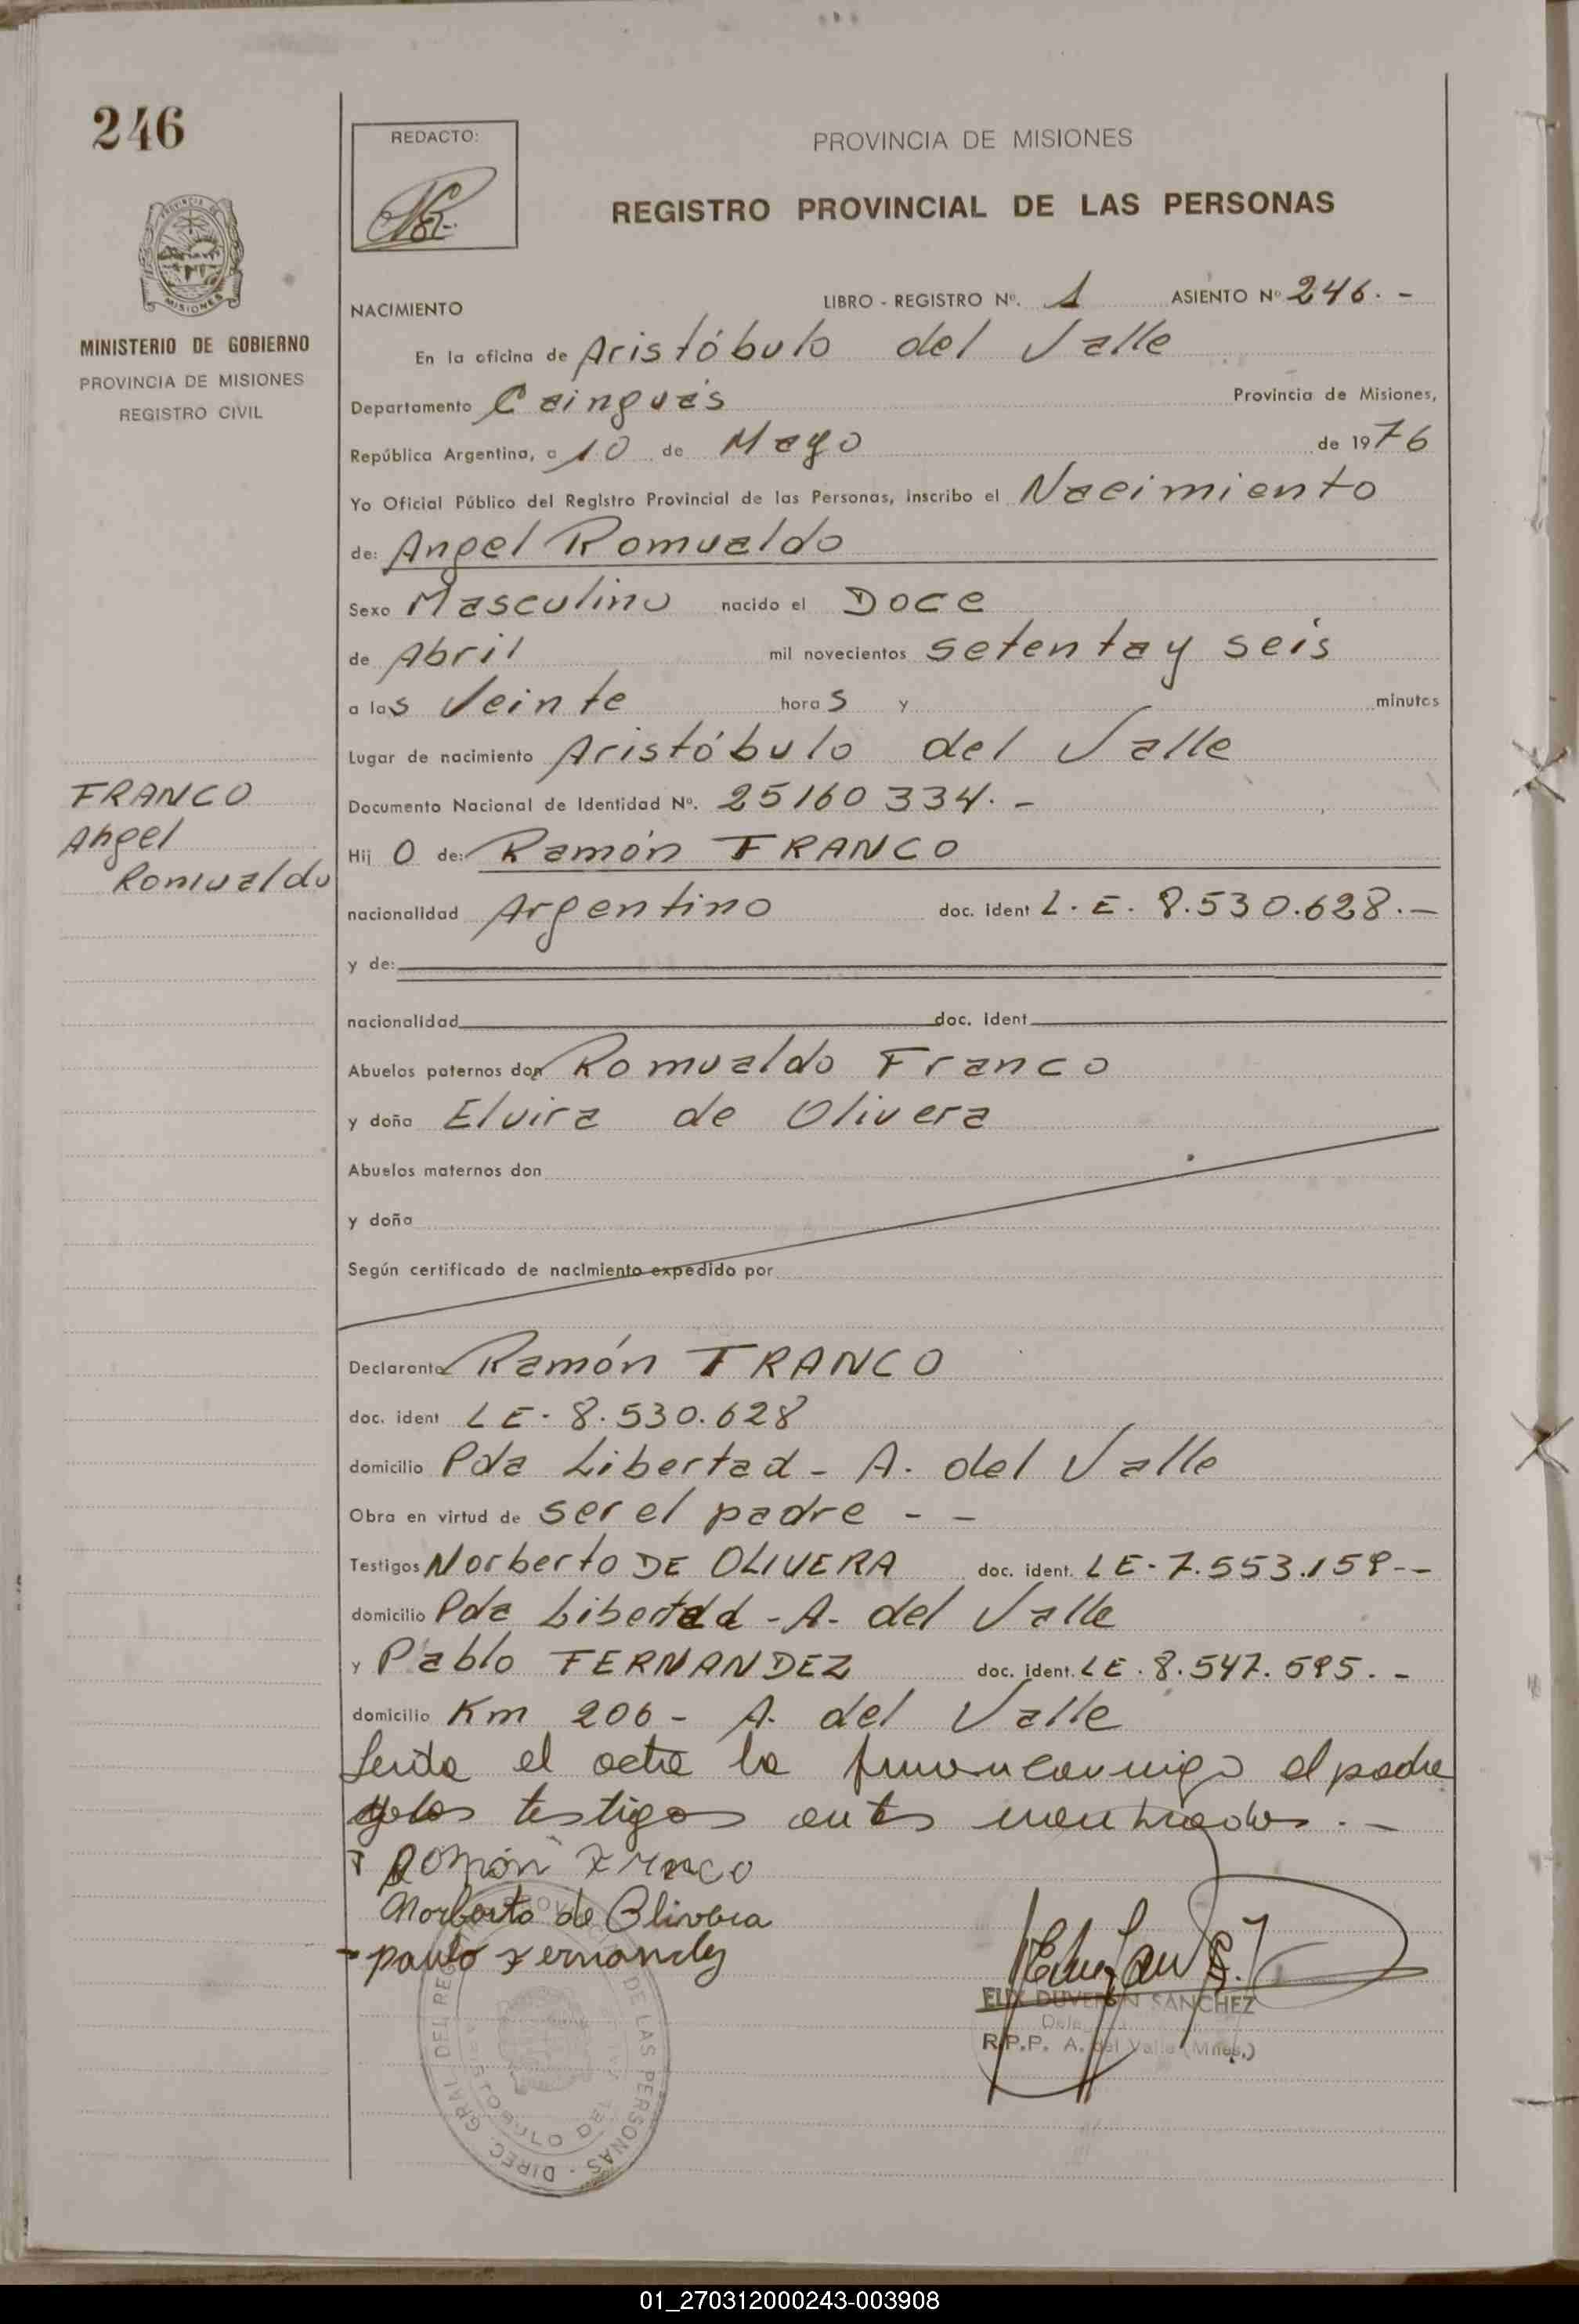 246
REDACTO:
PROVINCIA DE MISIONES
REGISTRO PROVINCIAL DE LAS PERSONAS
MISIONES
MINISTERIO DE GOBIERNO
PROVINCIA DE MISIONES
REGISTRO CIVIL
NACIMIENTO LIBRO - REGISTRO Nº. 1 ASIENTO Nº 246. -
En la oficina de Aristóbulo del Valle
Departamento Cainguás Provincia de Misiones,
República Argentina, a 10 de Mayo de 1976
Yo Oficial Público del Registro Provincial de las Personas, inscribo el Nacimiento
de: Angel Romualdo
Sexo Masculino nacido el Doce
de Abril mil novecientos setenta y seis
a las Veinte horas y minutos
Lugar de nacimiento Aristóbulo del Valle
FRANCO
Angel
Romualdo
Documento Nacional de Identidad Nº. 25160334. -
Hijo de: Ramón FRANCO
nacionalidad Argentino doc. ident L. E. 8.530.628. -
y de:
nacionalidad doc. ident.
Abuelos paternos don Romualdo Franco
y doña Elvira de Olivera
Abuelos maternos don
y doña
Según certificado de nacimiento expedido por
Declarante Ramón FRANCO
doc. ident LE - 8.530.628
domicilio Pda Libertad - A. del Valle
Obra en virtud de ser el padre - -
Testigos Norberto DE OLIVERA doc. ident. LE - 7.553.159 - -
domicilio Pda Libertad - A. del Valle
y Pablo FERNANDEZ doc. ident. LE. 8.547.595. -
domicilio Km 206 - A. del Valle
Leida el acta la firman conmigo el padre
y los testigos antes nombrados. -
Román Franco
Norberto de Olivera
pablo Fernandez
ELIX DUVERON SANCHEZ
R.P.P. A. del Valle (Mnes.)
DIREC. GRAL DEL REG PROV DE LAS PERSONAS
01_270312000243-003908